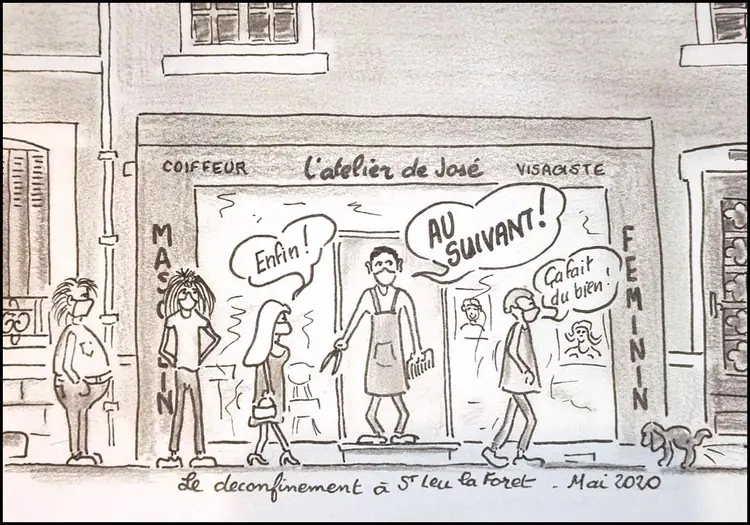 COIFFEUR L'atelier de José VISAGISTE
MASCULIN
FEMININ
Enfin !
AU
SUIVANT !
Ça fait
du bien !
Le deconfinement à ST Leu la Foret - Mai 2020